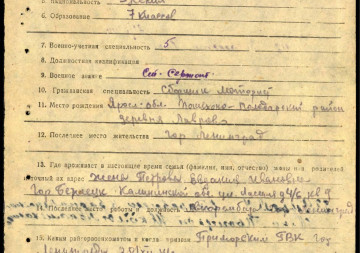 5. Национальность
6. Образование 7 классов
7. Военно-учетная специальность
8. Должностная квалификация
9. Военное звание Ст. Сержант
10. Гражданская специальность Сборщик моторист
11. Место рождения Яросл. обл. Пошехоно-Володарский район
деревня Лаврово
12. Последнее место жительства гор. Ленинград
13. Где проживает в настоящее время семья (фамилия, имя, отчество) жены или родителей
и точный их адрес жена Петрова Евдокия Ивановна
гор. Бежецк Калининской обл.
14. Последнее место работы и должность Ленинград
15. Каким райгорвоенкоматом и когда призван Приморским РВК гор.
Ленинграда